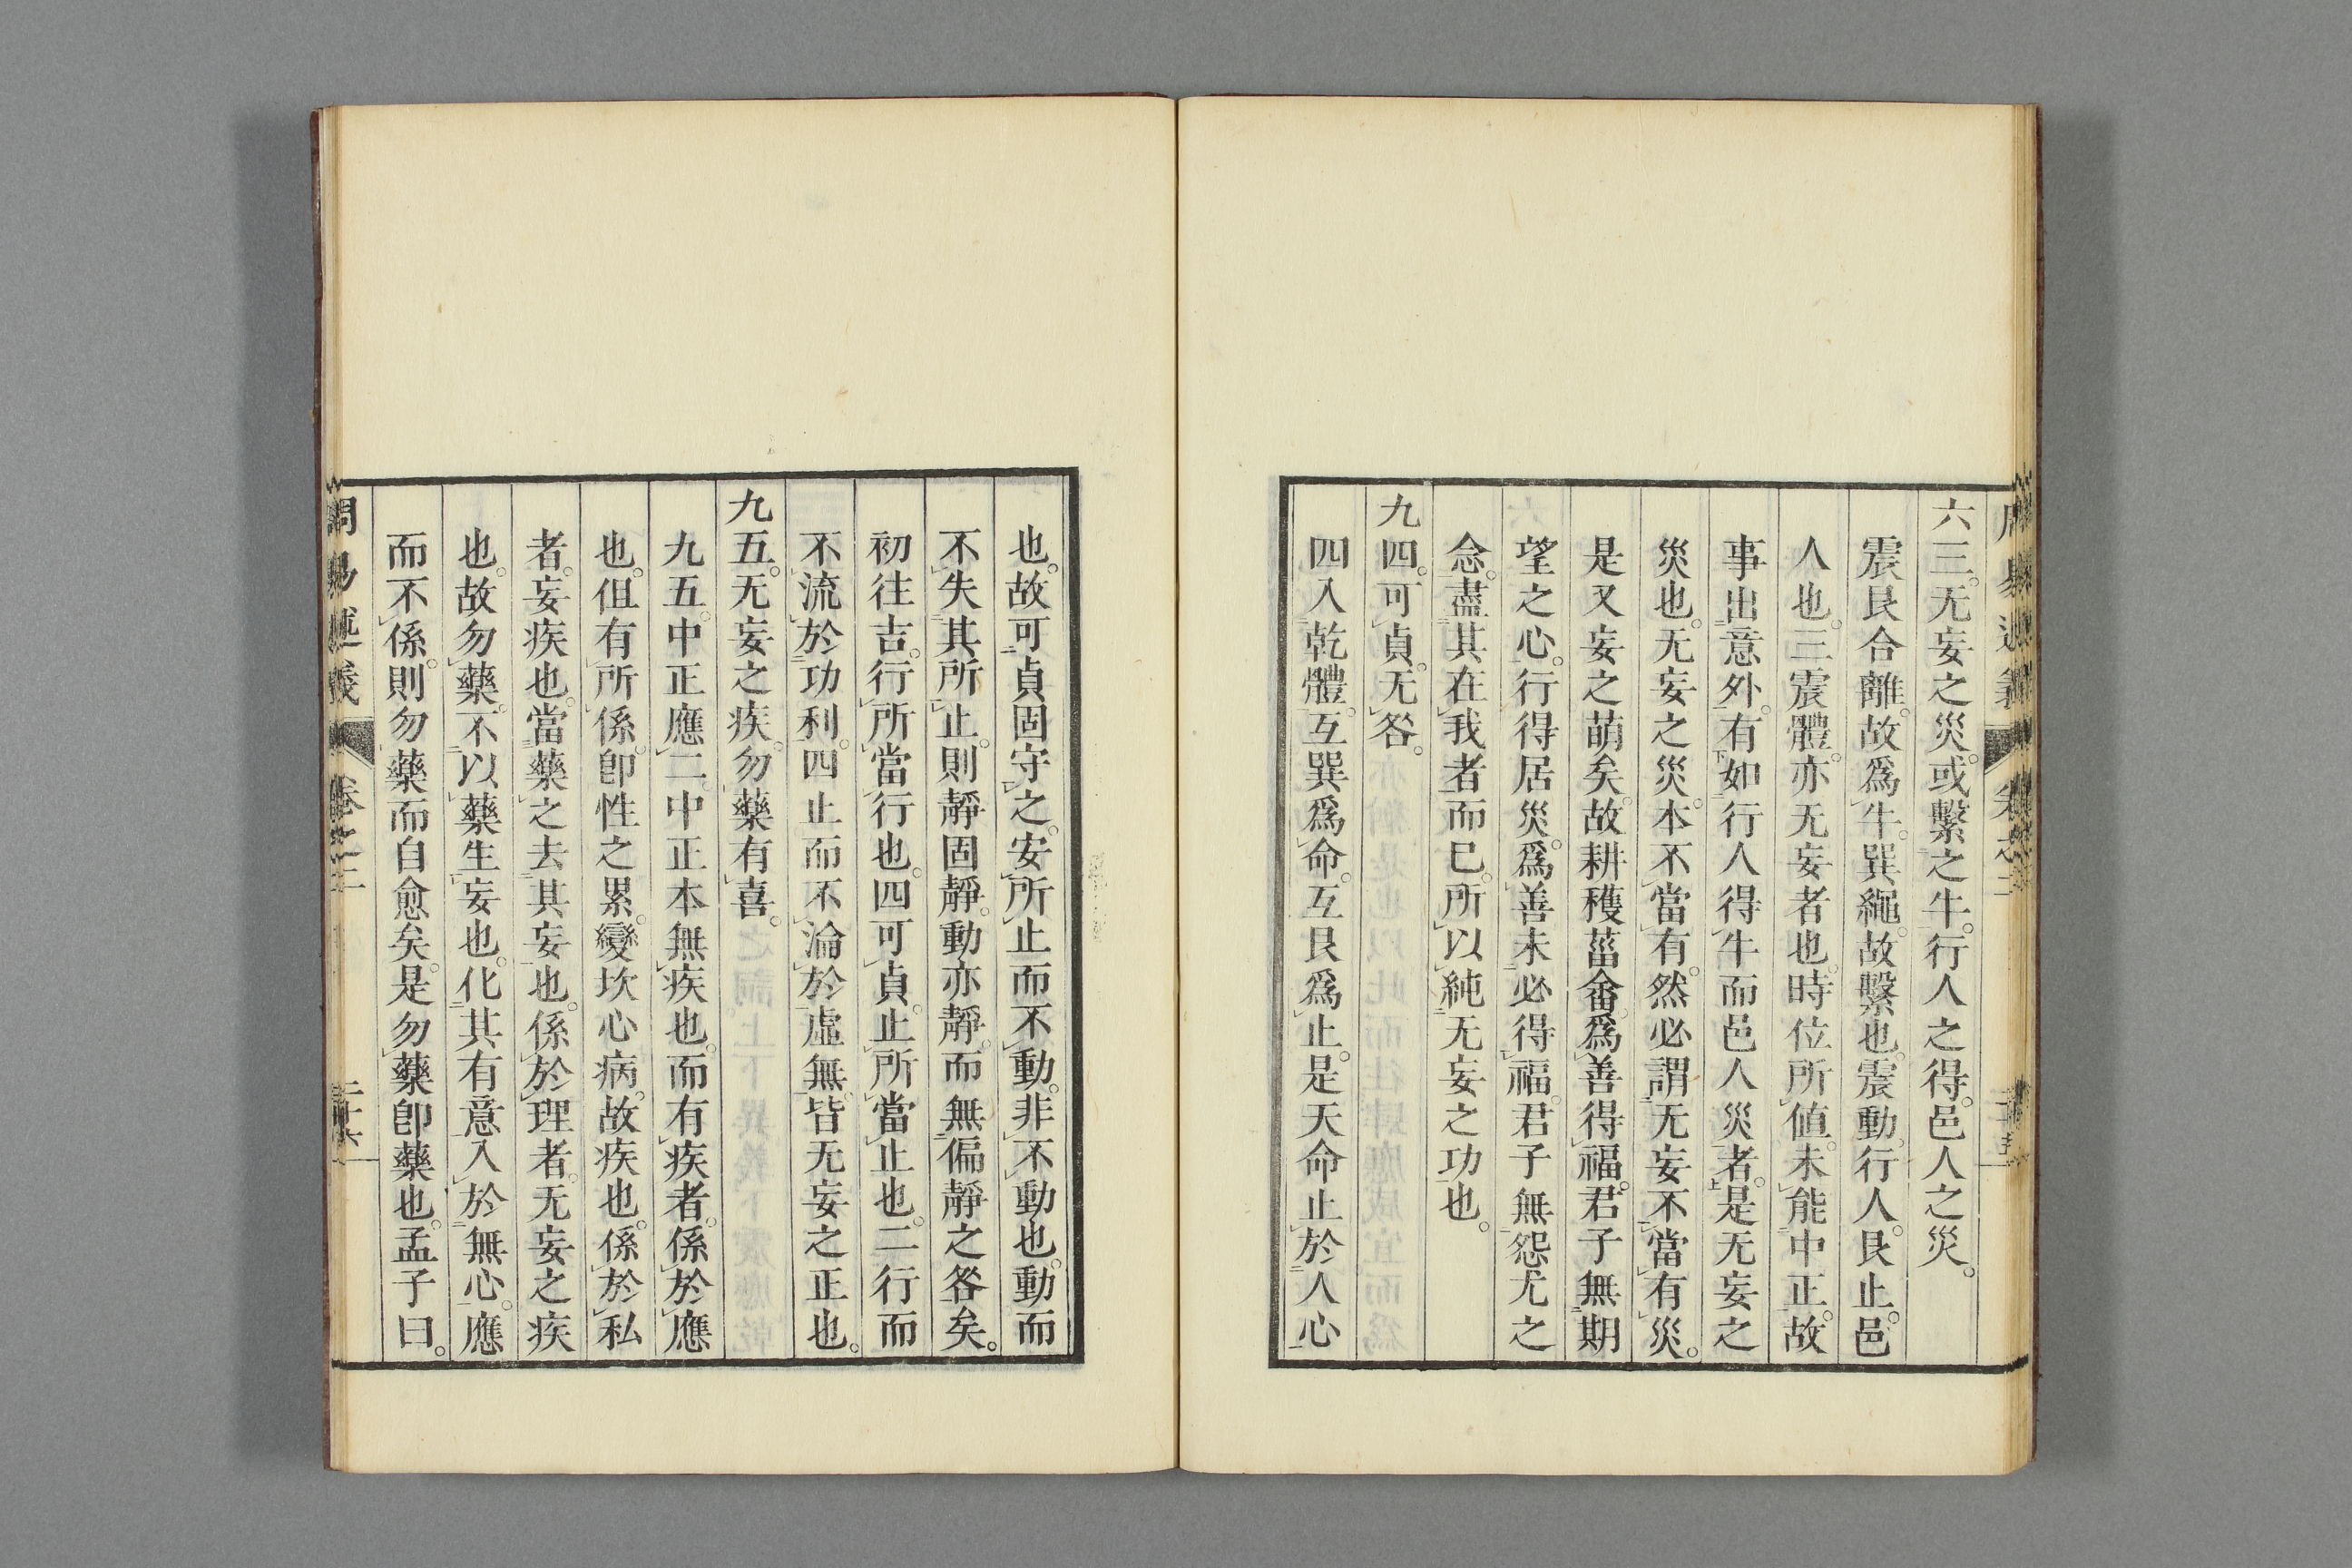 六三。无妄之災。或繫之牛。行人之得。邑人之災。
震艮合離。故爲牛。巽繩。故繫也。震動。行人。艮止。邑
人也。三震體。亦无妄者也。時位所値。未能中正。故
事出意外。有如行人得牛而邑人災者。是无妄之
災也。无妄之災。本不當有。然必謂无妄不當有災。
是又妄之萌矣。故耕穫菑畬。爲善得福。君子無期
望之心。行得居災。爲善未必得福。君子無怨尤之
念。盡其在我者而已。所以純无妄之功也。
九四。可貞。无咎。
四入乾體。互巽爲命。互艮爲止。是天命止於人心
也。故可貞固守之。安所止而不動。非不動也。動而
不失其所止。則靜固靜。動亦靜。而無偏靜之咎矣。
初往吉。行所當行也。四可貞。止所當止也。二行而
不流於功利。四止而不淪於虛無。皆无妄之正也。
九五。无妄之疾。勿藥有喜。
九五。中正應二。中正本無疾也。而有疾者。係於應
也。但有所係。卽性之累。變坎心病。故疾也。係於私
者。妄疾也。當藥之去其妄也。係於理者。无妄之疾
也。故勿藥。不以藥生妄也。化其有意入於無心。應
而不係。則勿藥而自愈矣。是勿藥卽藥也。孟子曰。
周易述義 卷之二 二十六